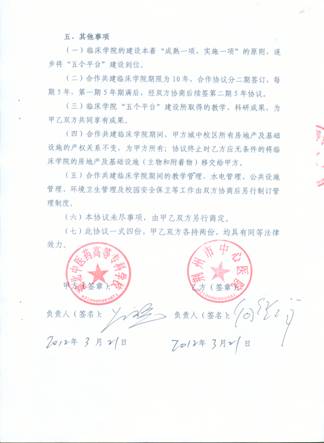 五、其他事项
（一）临床学院的建设本着“成熟一项，实施一项”的原则，逐
步将“五个平台”建设到位。
（二）合作共建临床学院期限为10年，合作协议分二期签订，每
期5年，第一期5年期满后，经双方协商后续签第二期5年协议。
（三）临床学院“五个平台”建设所取得的教学、科研成果，为
甲乙双方共同享有成果。
（四）合作共建临床学院期间，甲方城中校区所有房地产及基础
设施的产权关系不变，为甲方所有；协议终止时乙方应无条件的将临
床学院的房地产及基础设施（主物和附着物）移交给甲方。
（五）合作共建临床学院期间的教学管理、水电管理、公共设施
管理、环境卫生管理及校园安全保卫等工作由双方协商后另行制订管
理制度。
（六）本协议未尽事项，由甲乙双方另行商定。
（七）此协议一式四份，甲乙双方各持两份，均具有同等法律
效力。
湖北中医药高等专科学校
荆州市中心医院
甲方（签章）：
乙方（签章）：
负责人（签名）：
负责人（签名）：
2012年3月21日
2012年3月21日